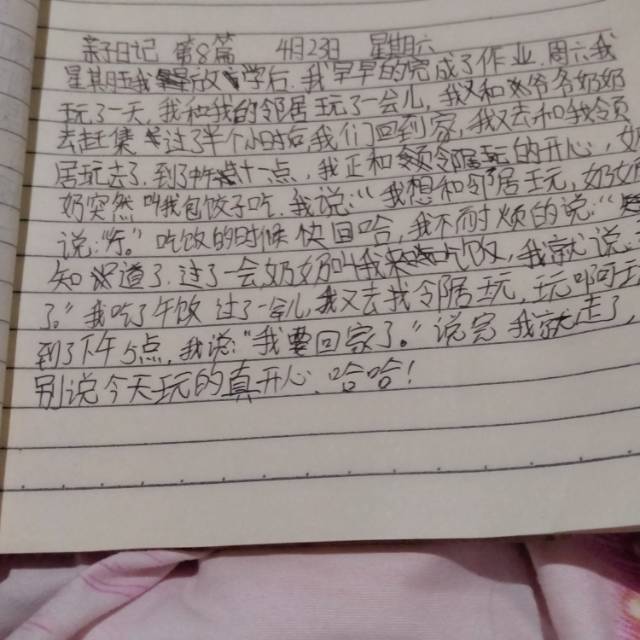 亲子日记 第8篇 4月23日 星期六
星期五我放学后,我早早的完成了作业,周六我
玩了一天,我和我的邻居玩了一会儿,我又和爷爷奶奶
去赶集,过了半个小时后我们回到家,我又去和我邻
居玩去了,到了十一点,我正和邻居玩的开心,奶
奶突然叫我包饺子吃,我说:“我想和邻居玩,奶奶
说:“行。”吃饭的时候快回哈,我不耐烦的说:“
知道了,过了一会,奶奶叫我吃饭,我就说:
了。”我吃了午饭,过了一会儿,我又去找邻居玩,玩啊
到了下午5点,我说:“我要回家了。”说完我就走了,
别说今天玩的真开心、哈哈!